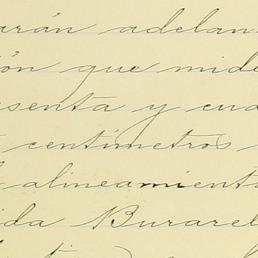 arán adelan
ión que mide
senta y cua
centímetros
alineamiento
ida Burarel